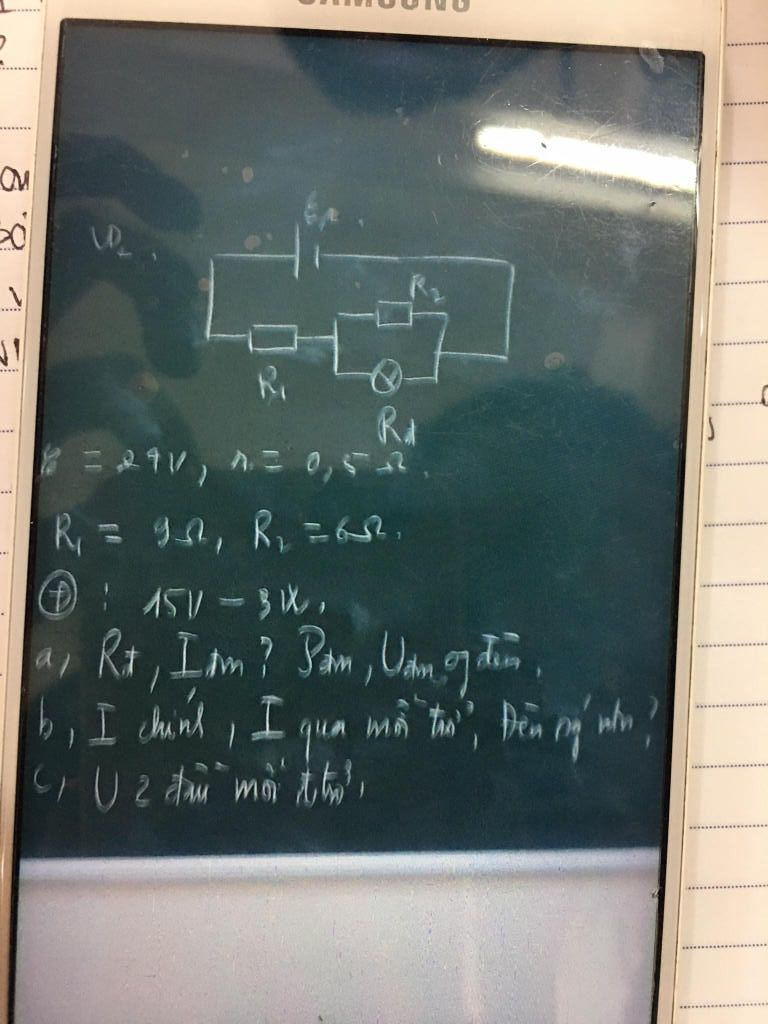 SAMSUNG
VD2.
R2
R1
Rđ
r = 0,5Ω.
R1 = 9Ω, R2 = 6Ω.
Đ : 15V - 3W.
a, Rđ, Iđm? Pđm, Uđm, đèn.
b, I chính, I qua mỗi trở, Đèn ntn?
c, U 2 đầu mỗi đ trở.